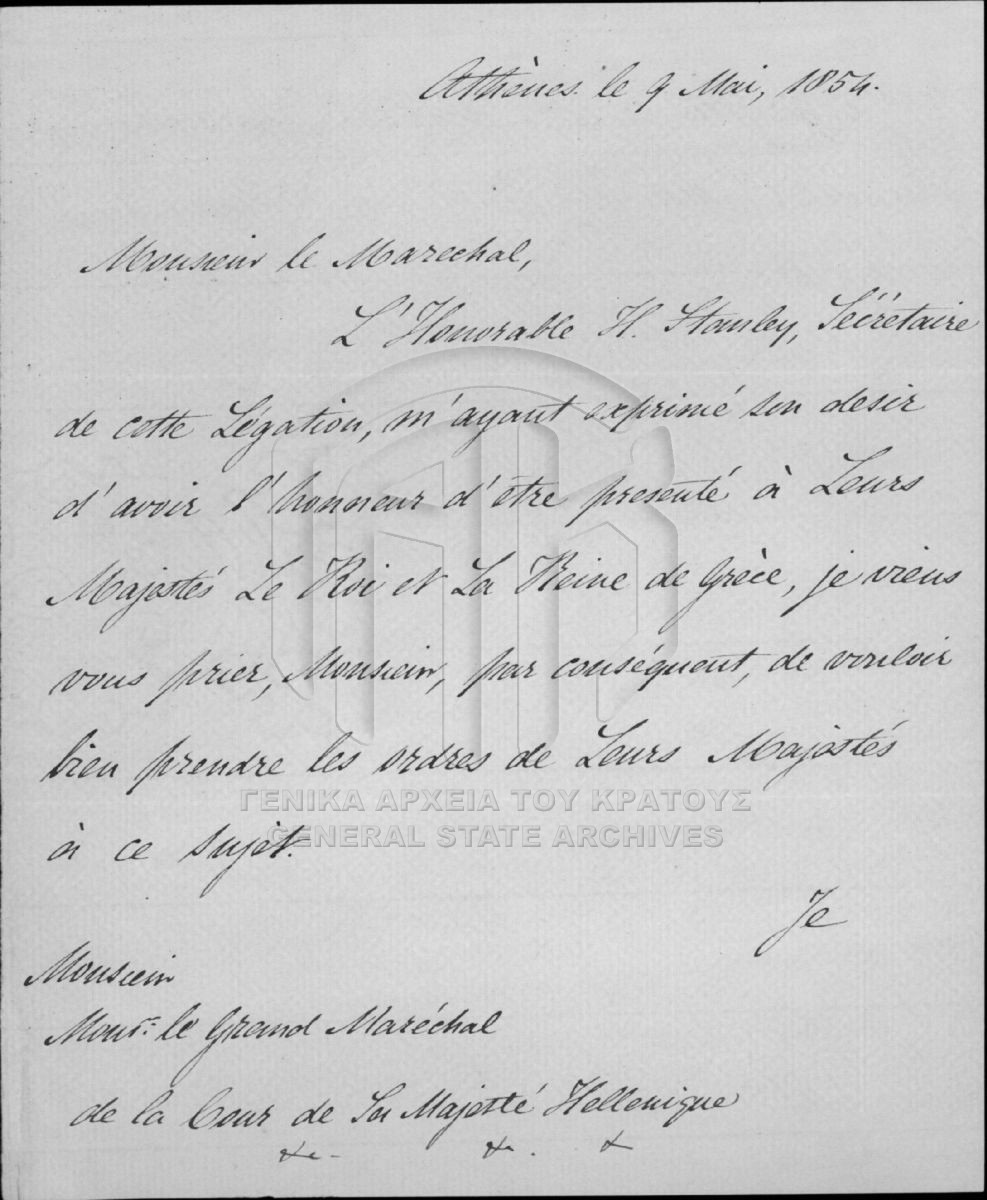 Athènes le 9 Mai, 1854.
Monsieur le Marechal,
L'Honorable H. Stanley, Sécrétaire
de cette Légation, m'ayant exprimé son desir
d'avoir l'honneur d'être presenté à Leurs
Majestés Le Roi et La Reine de Grèce, je viens
vous prier, Monsieur, par conséquent, de vouloir
bien prendre les ordres de Leurs Majestés
à ce sujet.
Je
Monsieur
Monr. le Grand Maréchal
de la Cour de Sa Majesté Hellenique
&c - &c . &
ΓΕΝΙΚΑ ΑΡΧΕΙΑ ΤΟΥ ΚΡΑΤΟΥΣ
GENERAL STATE ARCHIVES